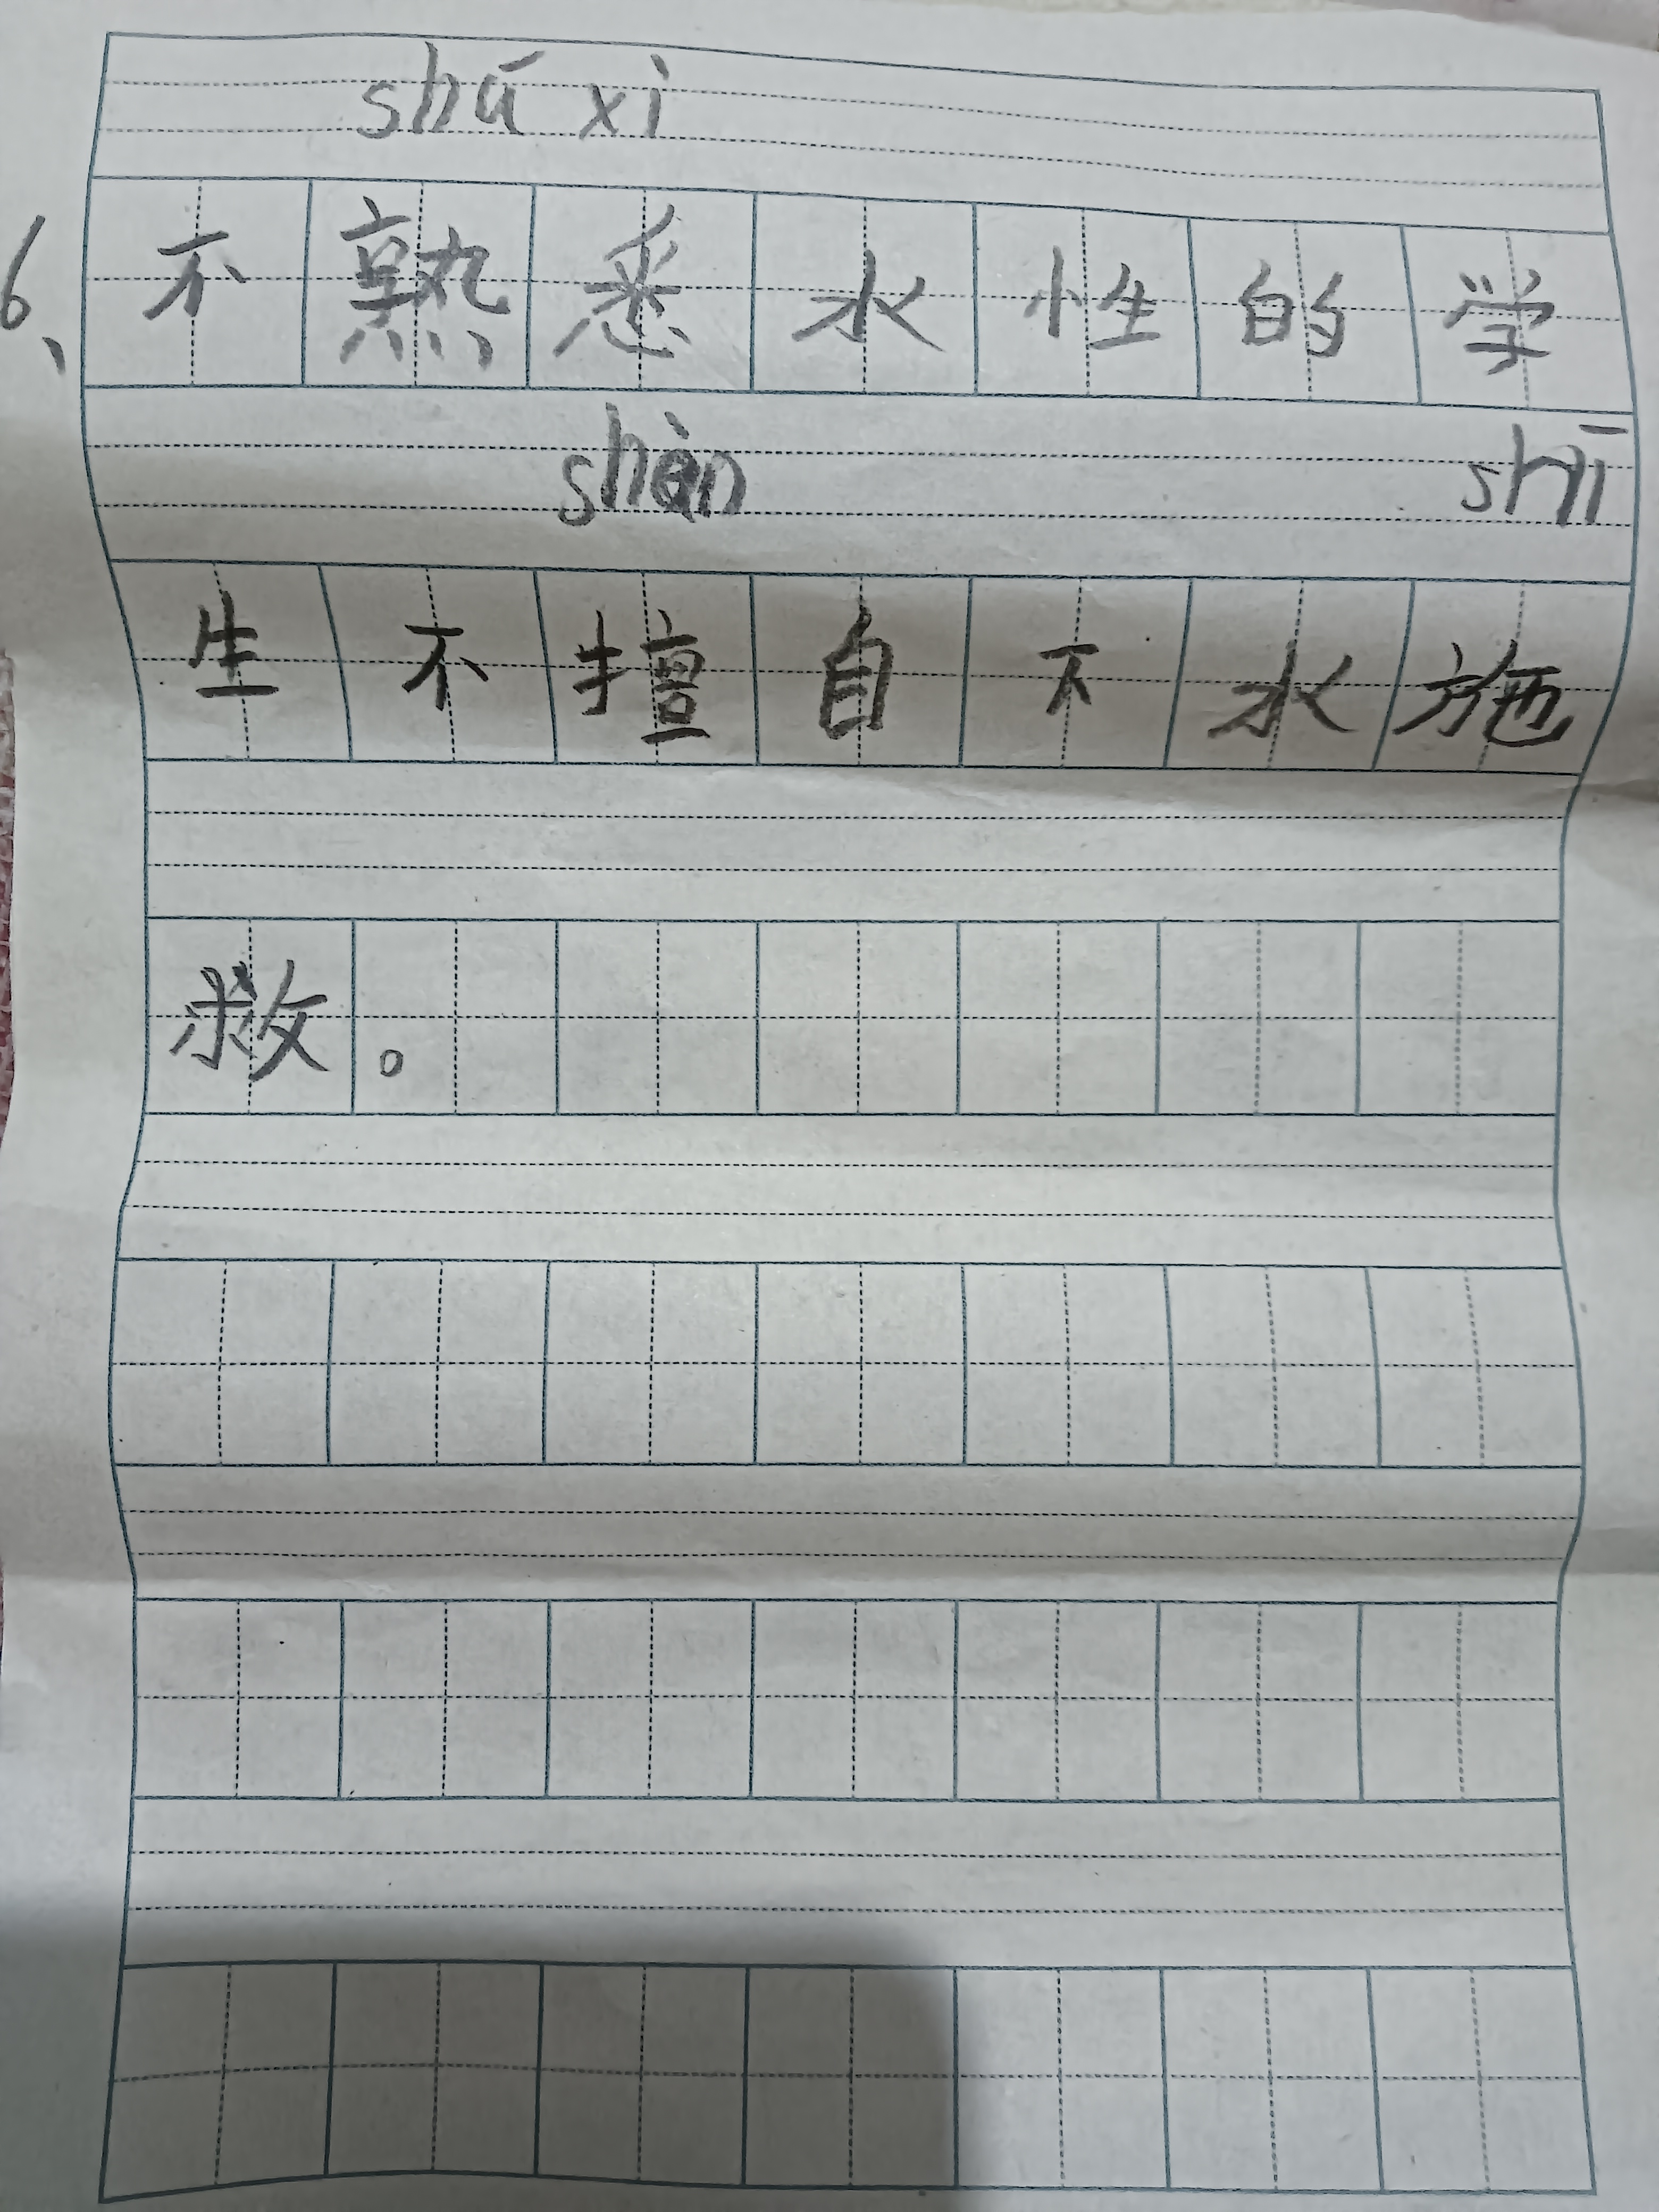 shú xi
6、不熟悉水性的学
shàn shī
生不擅自下水施
救。